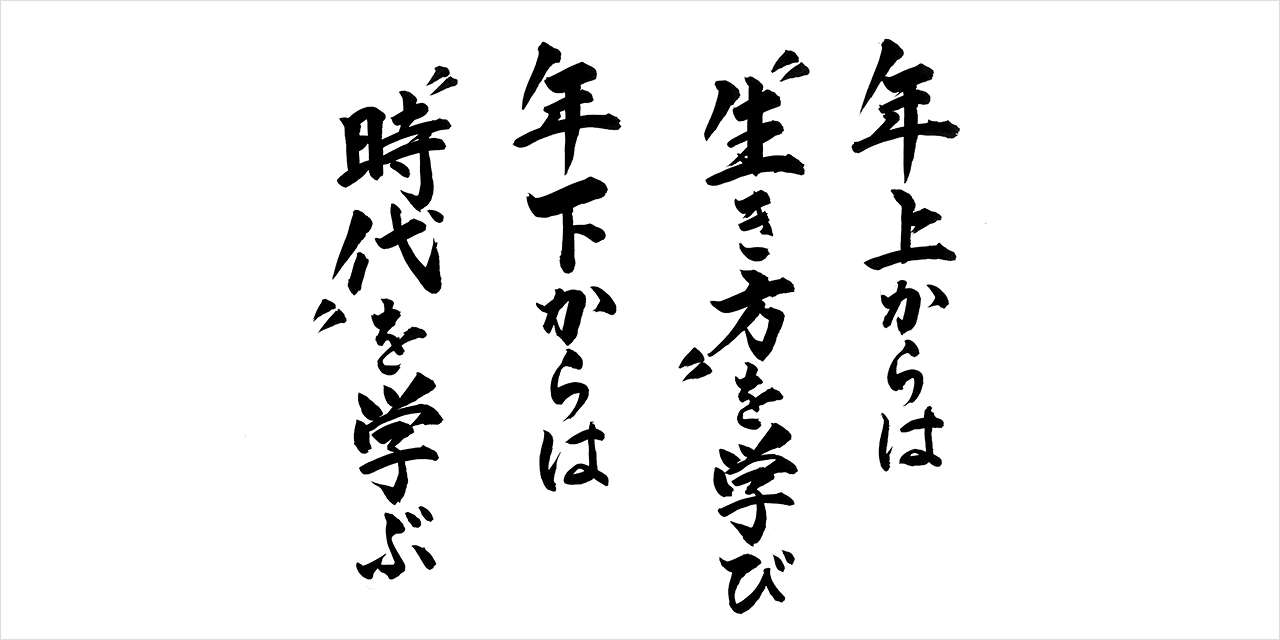 年上からは
〝生き方〟を学び
年下からは
〝時代〟を学ぶ